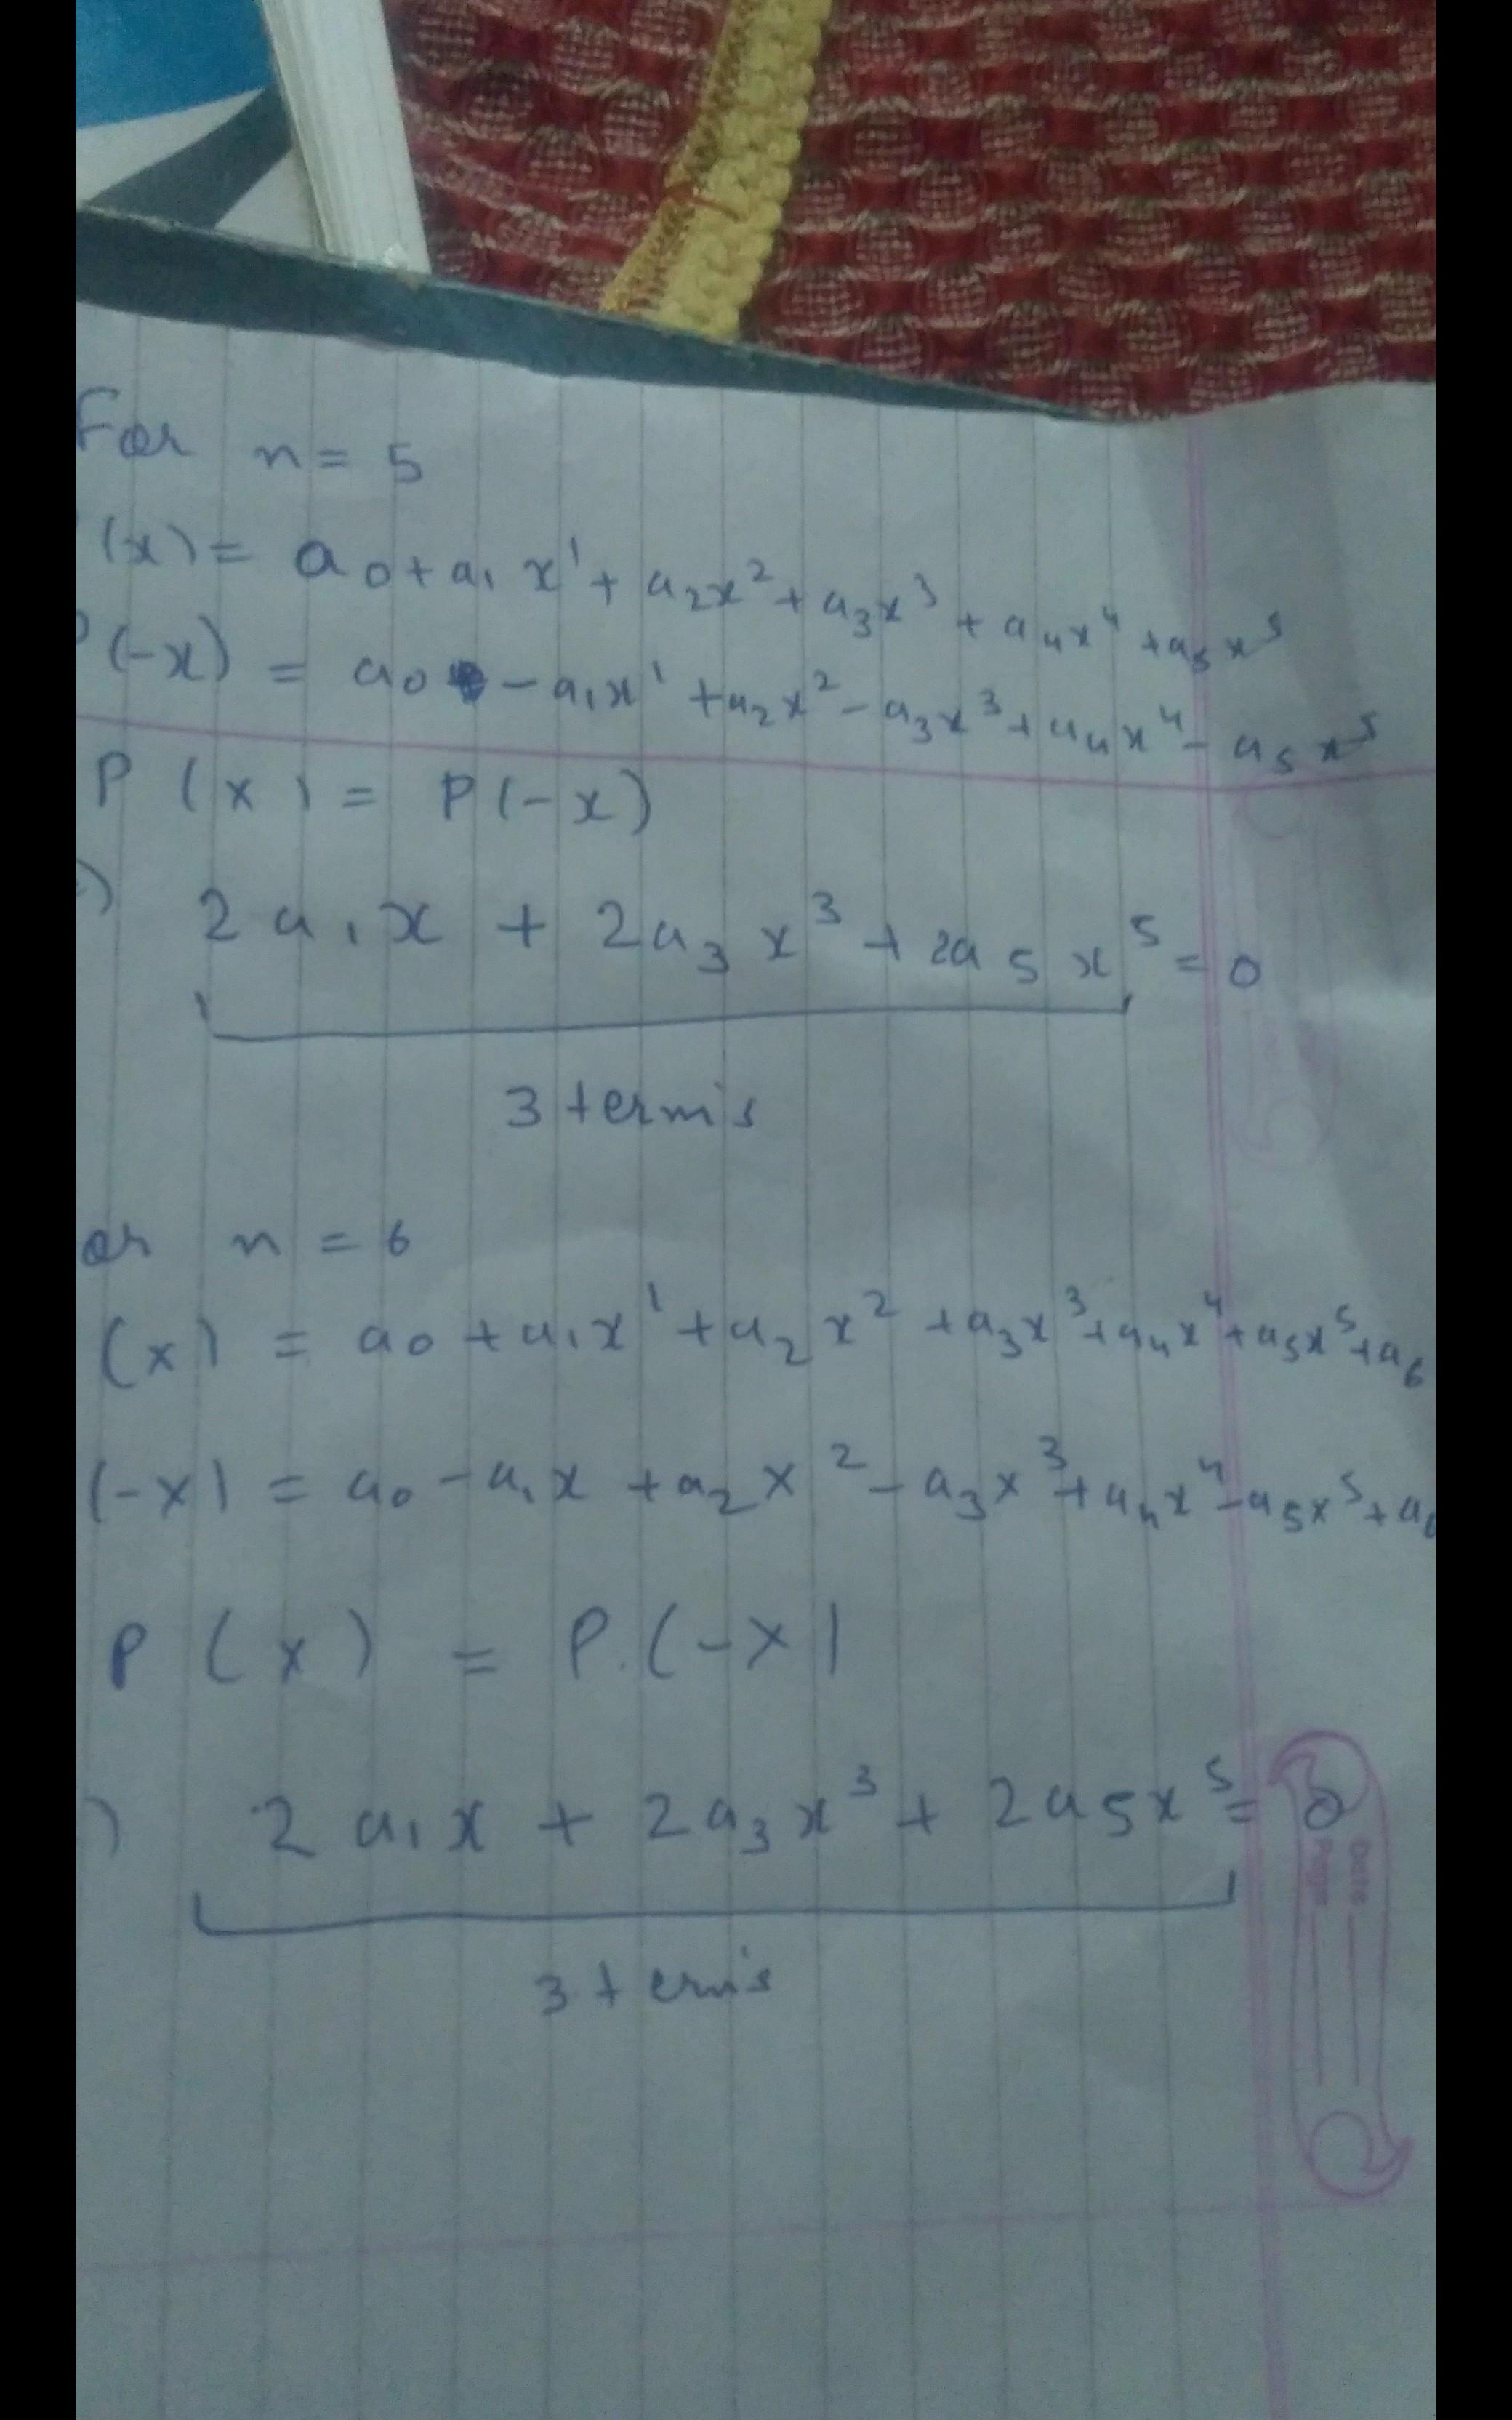 For n = 5
(x) = a₀ + a₁ x¹ + a₂x² + a₃x³ + a₄x⁴ + a₅x⁵
P(-x) = a₀ - a₁x¹ + a₂x² - a₃x³ + a₄x⁴ - a₅x⁵
P(x) = P(-x)
2a₁x + 2a₃x³ + 2a₅x⁵ = 0
3 terms
or n = 6
(x) = a₀ + a₁x¹ + a₂x² + a₃x³ + a₄x⁴ + a₅x⁵ + a₆
(-x) = a₀ - a₁x + a₂x² - a₃x³ + a₄x⁴ - a₅x⁵ + a₆
P(x) = P.(-x)
2a₁x + 2a₃x³ + 2a₅x⁵ = 0
3 terms
Date
Page